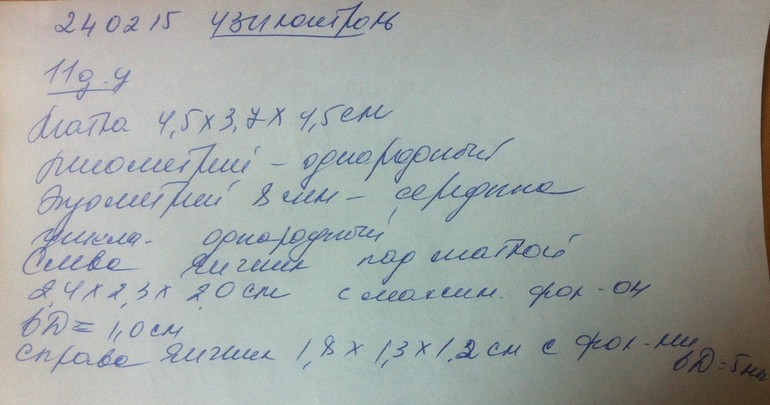 24 02 15 узи контроль
11 д. ц
Матка 4,5 х 3,7 х 4,5 см
миометрий - однородный
Эндометрий 8 мм - середина
цикла - однородный
Слева яичник под маткой
2,4 х 2,3 х 2.0 см с максим. фол-ом
вD = 1,0 см
Справа яичник 1,8 х 1,3 х 1.2 см с фол-ми
вD = 5 мм